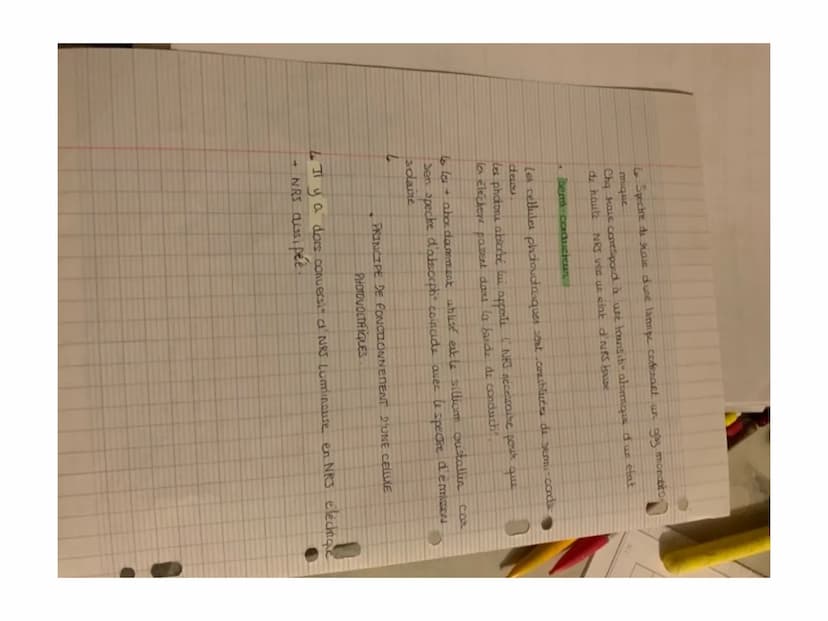 ↳ Spectre de raie d'une lampe contenant un gaz monoato-
mique
Chq raie correspond à une transit° atomique d'un état
de haute NRJ vers un état d'NRJ basse
• Semi-conducteurs
Les cellules photovoltaïques sont constituées de semi-conduc-
teurs
Les photons absorbé lui apporte l'NRJ nécessaire pour que
les électrons passent dans la bande de conduct°.
↳ les + abondamment utilisé est le sillicium cristallin car
son spectre d'absorpt° coincide avec le spectre d'émission
solaire
↳
• PRINCIPE DE FONCTIONNEMENT D'UNE CELLULE
PHOTOVOLTAÏQUES
↳ Il y a dors conversi° d'NRJ lumineuse en NRJ électrique
+ NRJ dissipée.